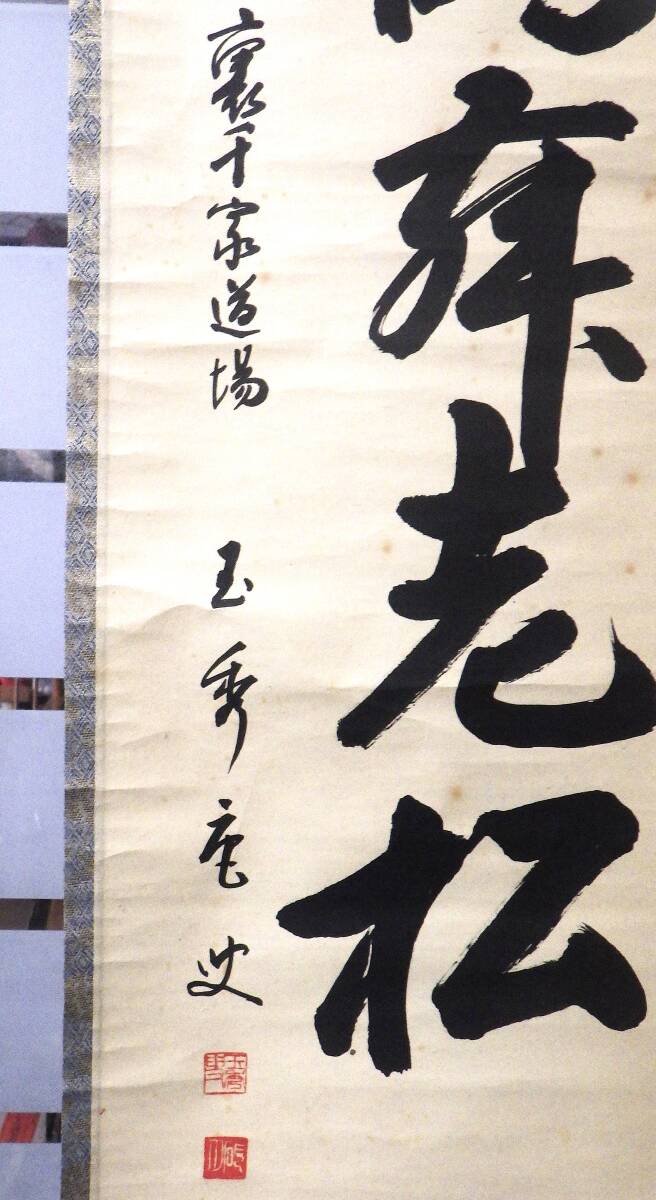 舞老松
裏千家道場 玉秀庵叟